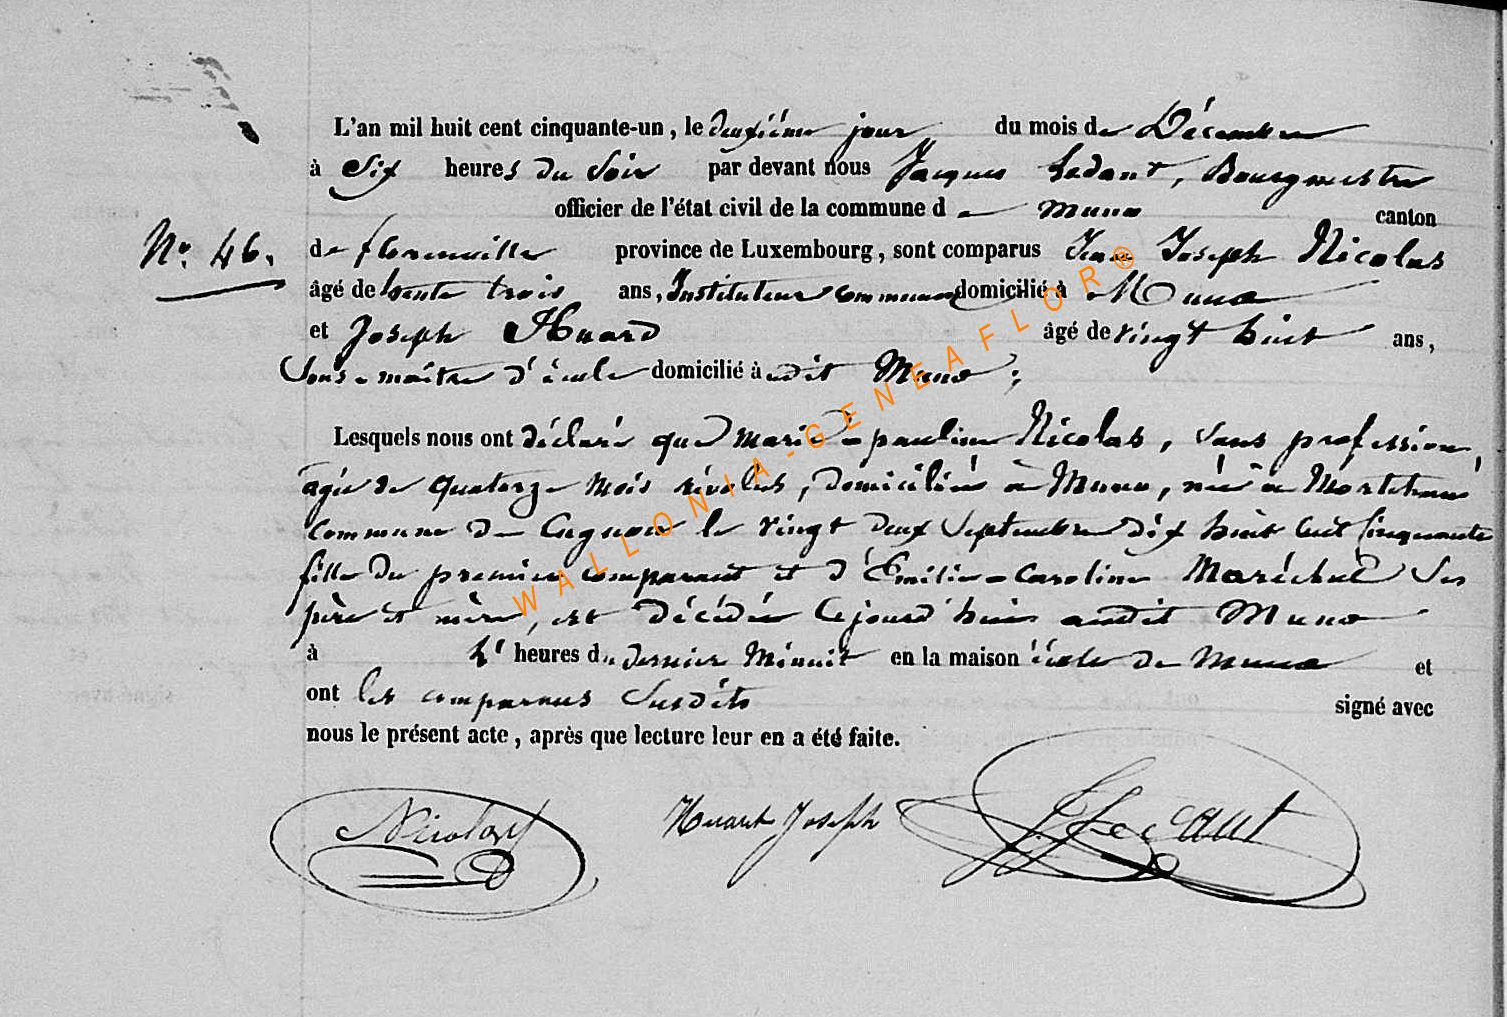 L'an mil huit cent cinquante-un, le deuxième jour du mois de Décembre
à Six heures du Soir par devant nous Jacques Ledant, Bourgmestre
officier de l'état civil de la commune de Muno canton
No. 46. de florenville province de Luxembourg, sont comparus Jean Joseph Nicolas
âgé de trente trois ans, Instituteur communal domicilié à Muno
et Joseph Huard âgé de vingt huit ans,
Sous-maître d'école domicilié à udit Muno;
Lesquels nous ont déclaré que marie-pauline Nicolas, sans profession,
agée de quatorze mois révolus, domiciliée à Muno, née à Mortehan
commune de Cugnon le vingt deux Septembre dix huit cent cinquante
fille du premier comparant et d'Emilie-Caroline Maréchal ses
père et mère, est décédée cejourd'hui audit Muno
à heures du dernier Minuit en la maison d'école de Muno et
ont les comparans susdits signé avec
nous le présent acte, après que lecture leur en a été faite.
Nicolas Huart Joseph
WALLONIA-GENEAFLOR®